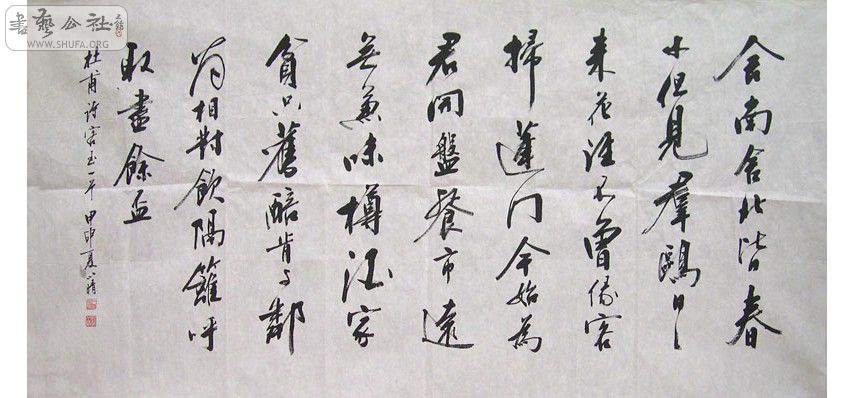 書藝公社
WWW.SHUFA.ORG
舍南舍北皆春
水但見羣鷗日日
来花徑不曾緣客
掃蓬門今始為
君開盤餐市遠
無兼味樽酒家
貧只舊醅肯与鄰
翁相對飲隔籬呼
取盡餘盃
杜甫詩客至一首 甲申夏